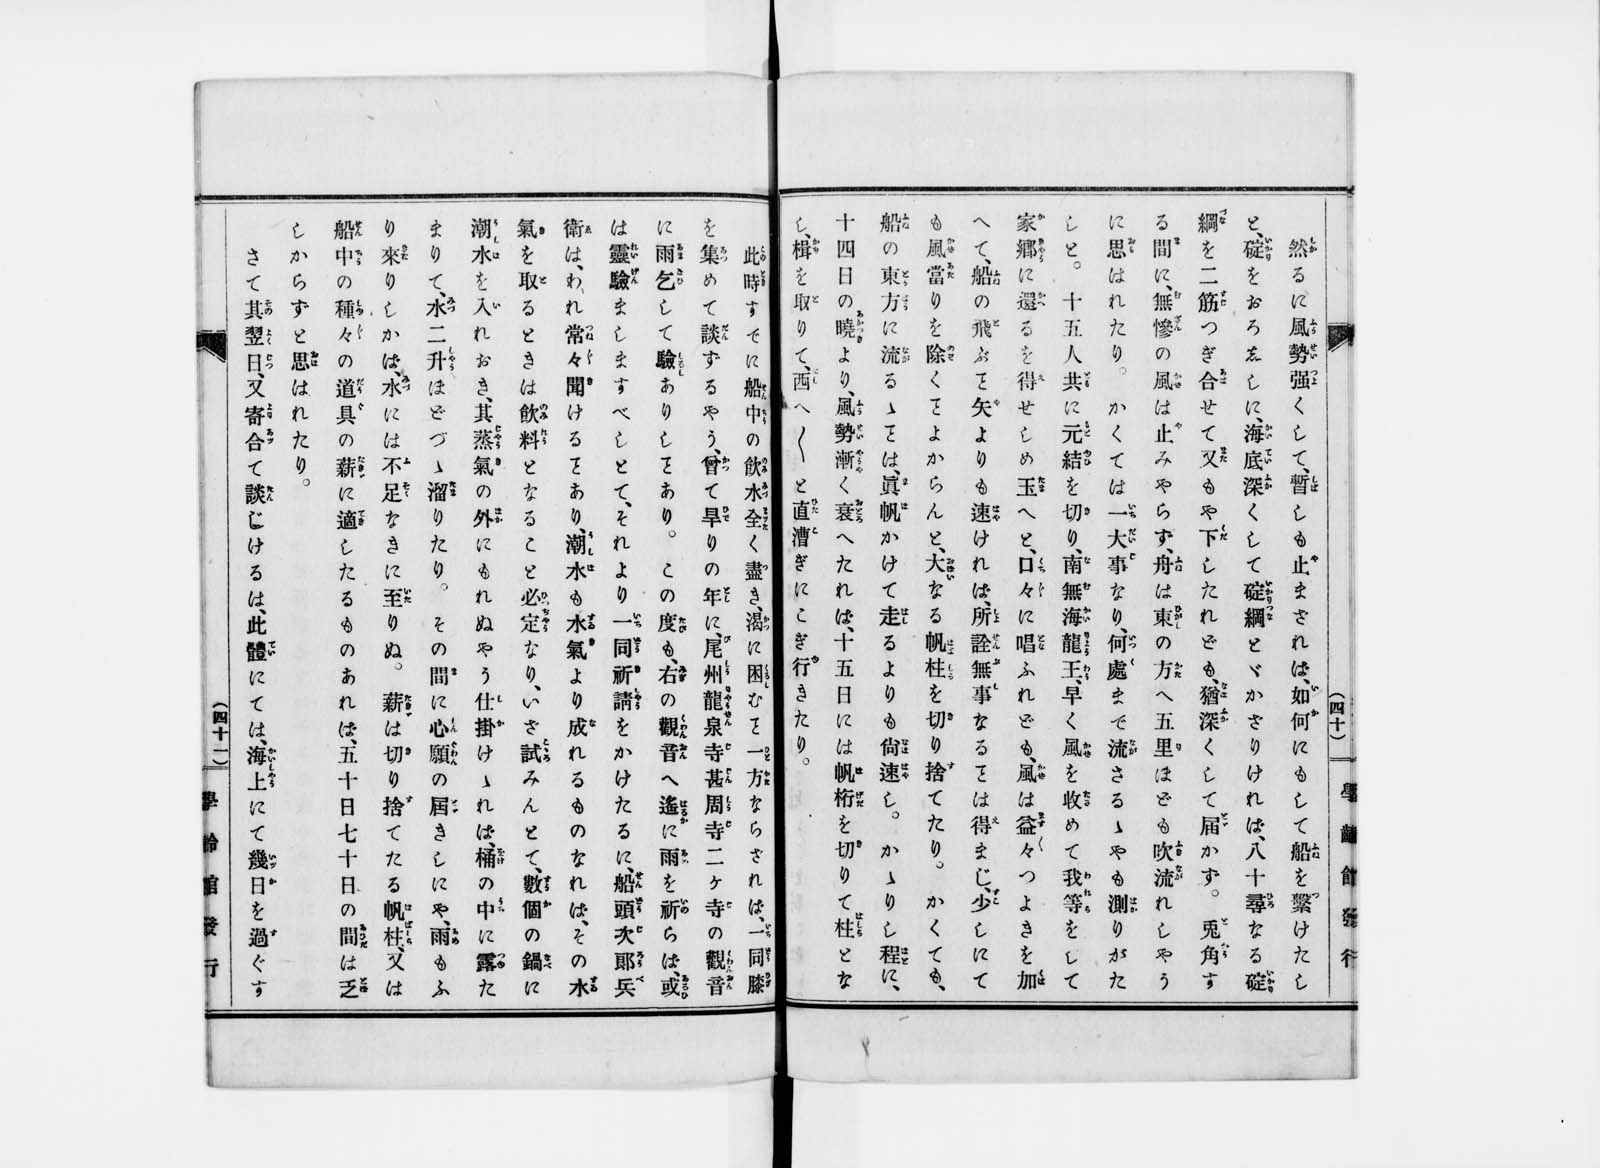 然るに風勢强くして、暫しも止まされば、如何にもして船を繋けたし
と、碇をおろさしに、海底深くして碇綱とゞかざりければ、八十尋なる碇
綱を二筋つぎ合せて又もや下したれども、猶深くして届かず。兎角す
る間に、無慘の風は止みやらず、舟は東の方へ五里ほども吹流れしやう
に思はれたり。かくては一大事なり、何處まで流さるゝやも測りがた
しと。十五人共に元結を切り、南無海龍王、早く風を收めて我等をして
家鄉に還るを得せしめ玉へと、口々に唱ふれども、風は益々つよきを加
へて、船の飛ぶこと矢よりも速ければ、所詮無事なることは得まじ、少しにて
も風當りを除くことよからんと、大なる帆柱を切り捨てたり。かくても、
船の東方に流るゝことは、眞帆かけて走るよりも尙速し。かゝりし程に、
十四日の曉より、風勢漸く衰へたれば、十五日には帆桁を切りて柱とな
し、楫を取りて、西へ〱と直漕ぎにこぎ行きたり。
(四十)
學齡館發行
此時すでに船中の飮水全く盡き、渴に困むこと一方ならされば、一同膝
を集めて談ずるやう、曾て旱りの年に、尾州龍泉寺甚周寺二ヶ寺の觀音
に雨乞して驗ありしことあり。この度も、右の觀音へ遙に雨を祈らば、或
は靈驗ましますべしとて、それより一同祈請をかけたるに、船頭次郎兵
衛は、われ常々聞けることあり、潮水も水氣より成れるものなれば、その水
氣を取るときは飮料となること必定なり、いざ試みんとて、數個の鍋に
潮水を入れおき、其蒸氣の外にもれぬやう仕掛けゝれば、桶の中に露た
まりて、水二升ほどづゝ溜りたり。その間に心願の屆きしにや、雨もふ
り來りしかば、水には不足なきに至りぬ。薪は切り捨てたる帆柱、又は
船中の種々の道具の薪に適したるものあれば、五十日七十日の間は乏
しからずと思はれたり。
さて其翌日、又寄合て談じけるは、此體にては、海上にて幾日を過ぐす
(四十一)
學齡館發行